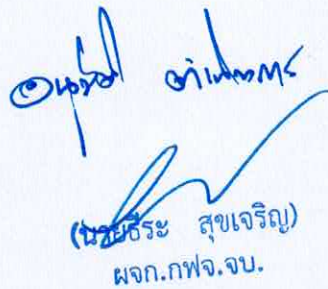 อนุมัติ ดำเนินการ
(นายธีระ สุขเจริญ)
ผจก.กฟจ.จบ.